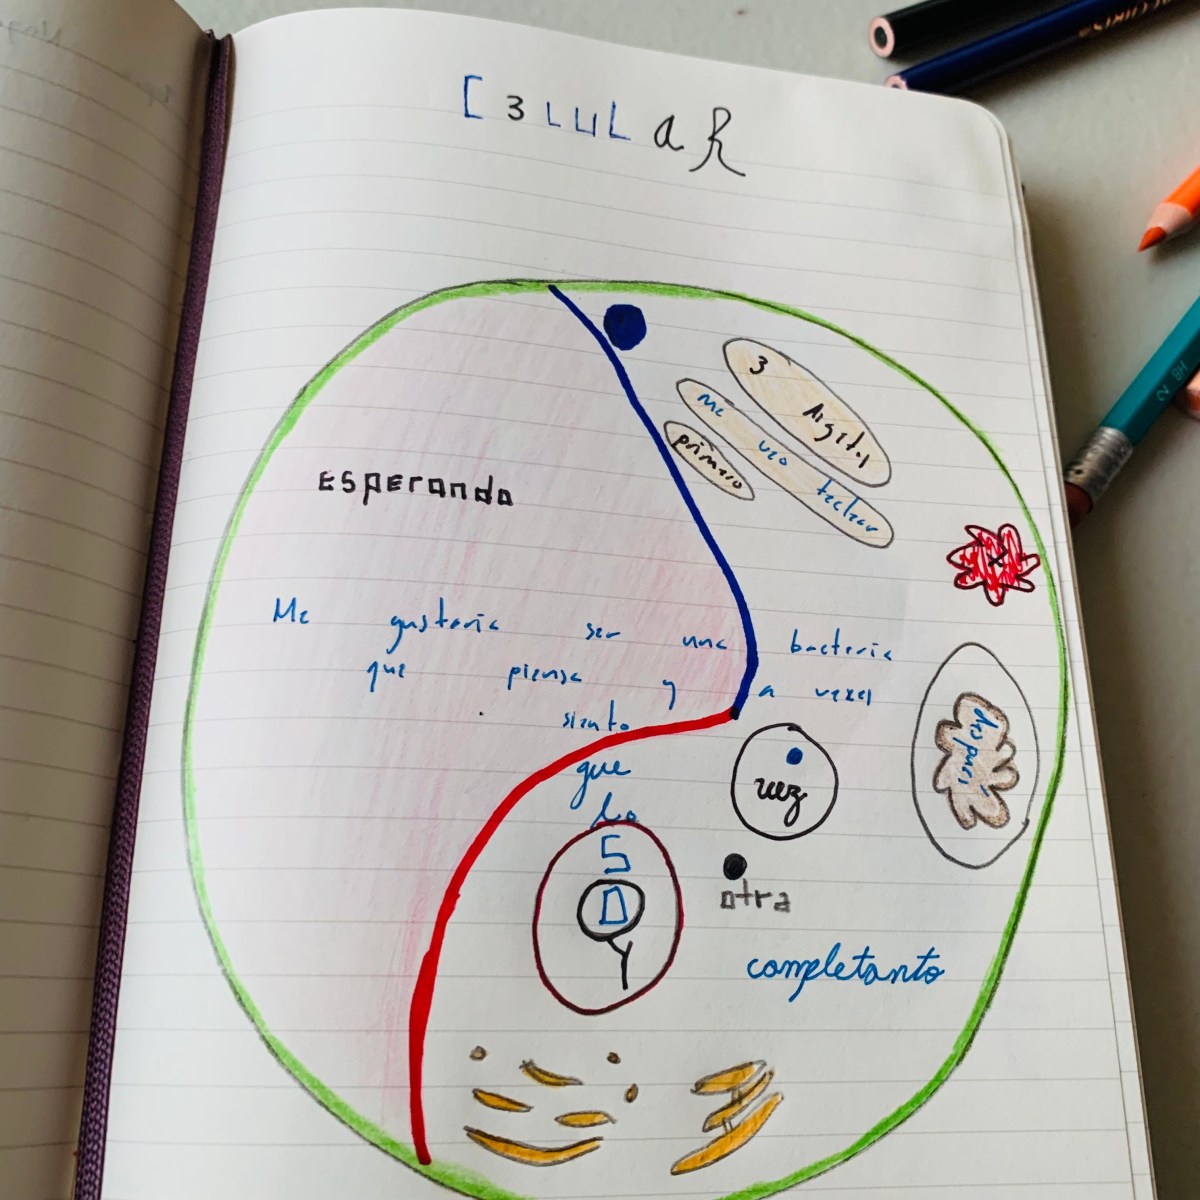 C3LULaR
3 Digital
Me veo teclear
primero
Esperando
x
Me gustaría ser una bacteria
que piensa y a veces
siento
que
lo
SOY
después
vez
otra
completanto
HB 2